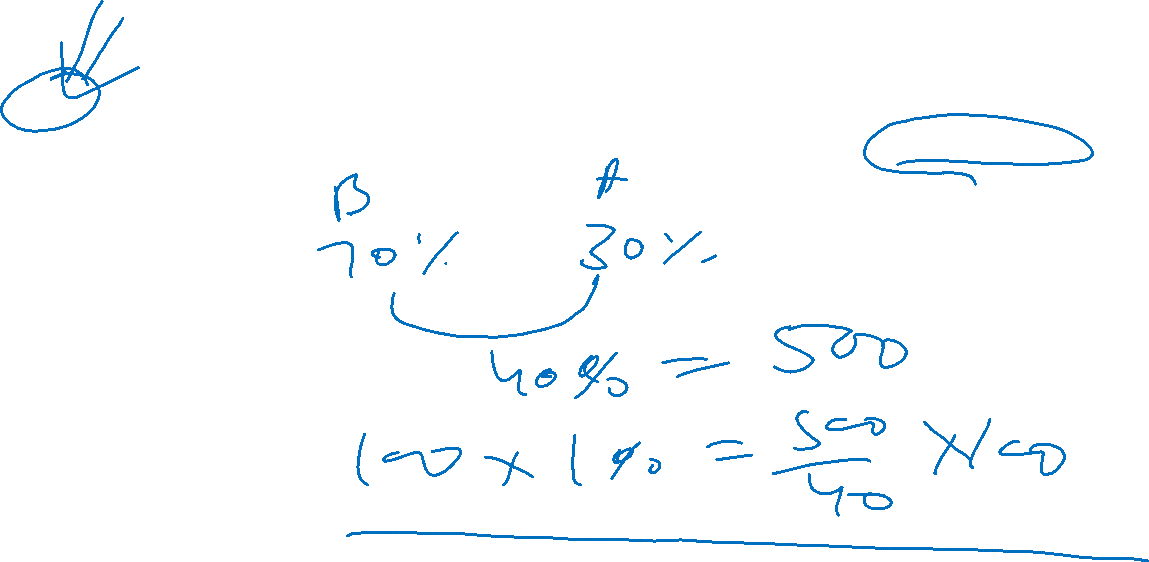 B A
70% 30%
40% = 500
100 × 1% = 500/40 × 100